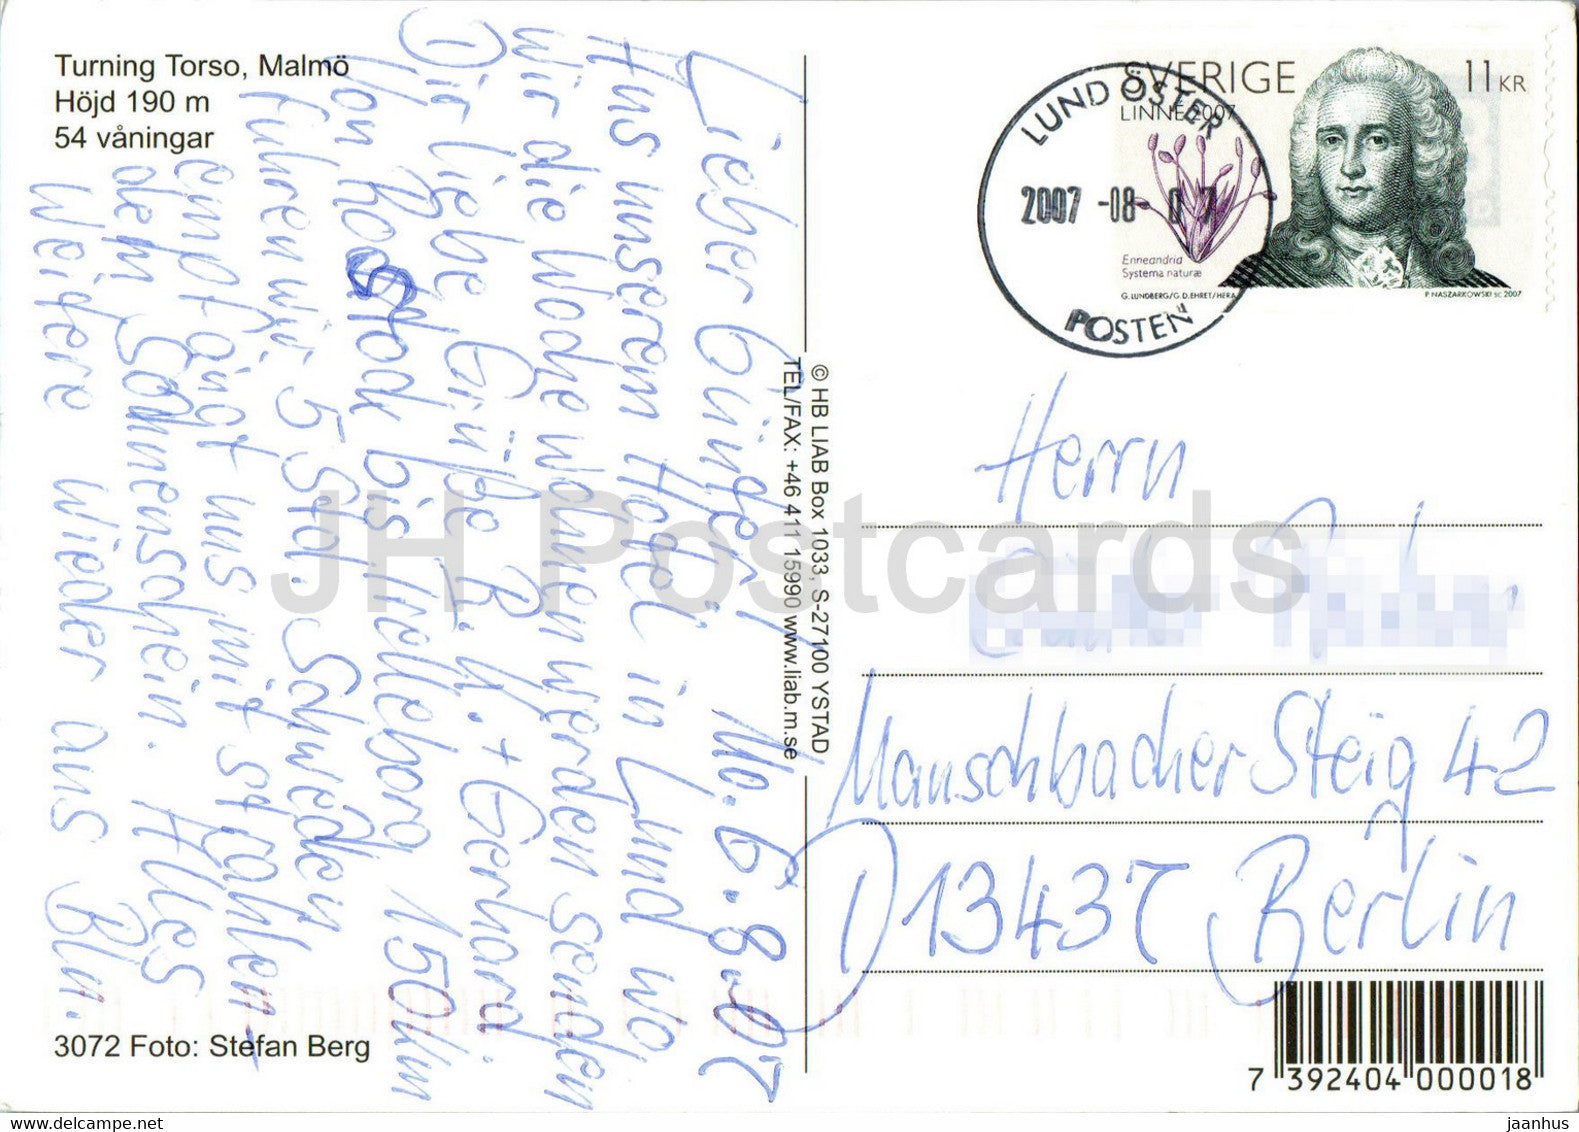 Turning Torso, Malmö
Höjd 190 m
54 våningar
Lieber Günter! Mo. 6.8.07
Aus unserem Hotel in Lund wo
wir die Woche wohnen werden senden
Dir liebe Grüße B. U. + Gerhard.
Von Rostock bis Trelleborg 150 km
fuhren wir 5 Std. Schweden
empfängt uns mit strahlen-
dem Sonnenschein. Alles
Weitere wieder aus Bln.
3072 Foto: Stefan Berg
© HB LIAB Box 1033, S-27100 YSTAD
TEL/FAX: +46 411 15990 www.liab.m.se
SVERIGE 11 KR
LINNÉ 2007
Enneandria
Systema naturæ
G. LUNDBERG/G.D. EHRET/HERA
P. NASZARKOWSKI SC 2007
LUND ÖSTER
2007 -08- 07
POSTEN
Herrn
Mauschbacher Steig 42
D 13437 Berlin
7 392404 000018
JH Postcards
jaanhus